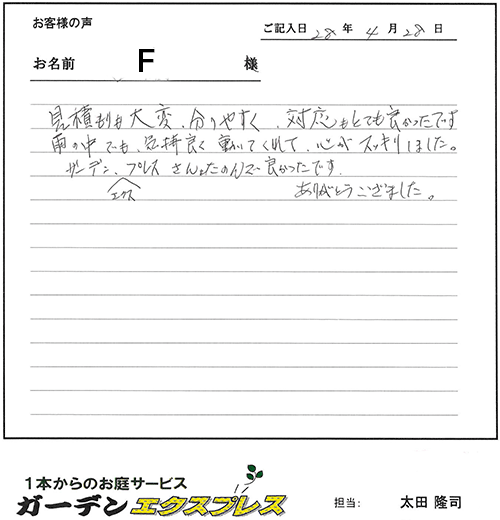 お客様の声
ご記入日 28 年 4 月 28 日
お名前 F 様
見積もりも大変、分りやすく、対応もとても良かったです
雨の中でも、気持良く動いてくれて、心がスッキリしました。
ガーデン、プレスさんにたのんで良かったです。
エクス
ありがとうございました。
1本からのお庭サービス
ガーデンエクスプレス
担当: 太田 隆司